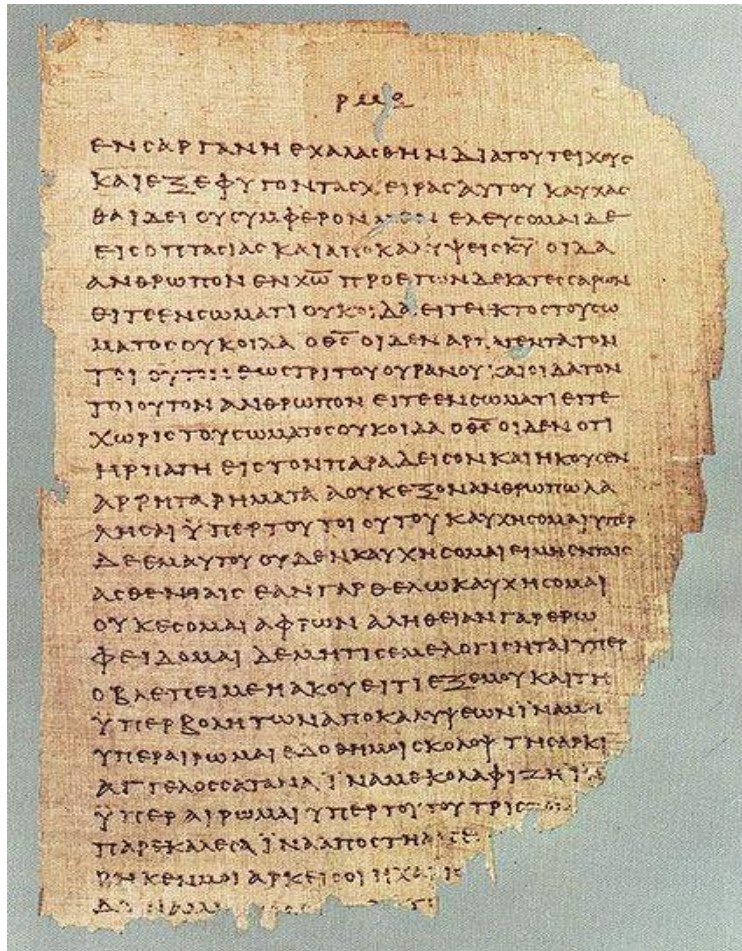 ρμο
ενσαργανηεχαλασθηνδιατουτειχους
καιεξεφυγοντασχειρασαυτου καυχας
θαιδει ουσυμφερονμεν ελευσομαιδε
εισοπτασιας καιαποκαλυψεισκ̅υ̅ οιδα
ανθρωπον ενχ̅ω̅ προετωνδεκατεσσαρων
ειτεενσωματιουκοιδα ειτεεκτοςτουσω
ματοςουκοιδα οθ̅ς̅ οιδεν αρπαγεντατον
τοιουτον εωςτριτουουρανου καιοιδατον
τοιουτον ανθρωπον ειτεενσωματιειτε
χωριςτουσωματοςουκοιδα οθ̅ς̅ οιδενοτι
ηρπαγη ειςτονπαραδεισονκαιηκουσεν
αρρηταρηματα αουκεξονανθρωπωλα
λησαι ϋπερτουτοιουτου καυχησομαιυπερ
δεεμαυτουουδενκαυχησομαιειμηενταις
ασθενειαις εανγαρθελωκαυχησομαι
ουκεσομαιαφρων αληθειανγαρερω
φειδομαι δεμητιςεμελογισηταιυπερ
οβλεπειμεηακουειτιεξεμουκαιτη
ϋπερβολητωναποκαλυψεωνϊναμη
υπεραιρωμαιεδοθημοισκολοψ τησαρκι
αγγελοςσατανα ϊναμεκολαφιζηϊ
ϋπεραιρωμαι υπερτουτουτρις
παρεκαλεσα ϊνααποστη
ρηκενμοιαρκεισοιηχαρις